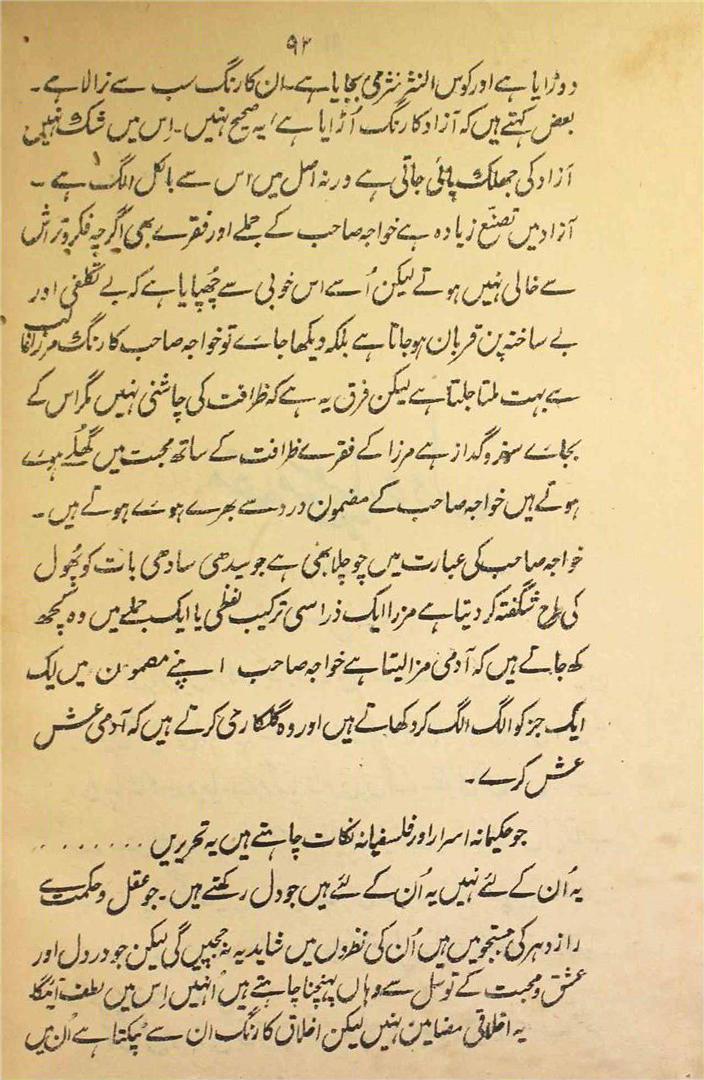 ۹۲
دوڑایا ہے اور کوس النثر نثرمی بجایا ہے۔ ان کا رنگ سب سے نرالا ہے۔
بعض کہتے ہیں کہ آزاد کا رنگ اُڑایا ہے، یہ صحیح نہیں۔ اِس میں شک نہیں
آزاد کی جھلک پائی جاتی ہے ورنہ اصل میں اس سے بالکل الگ ہے۔
آزاد میں تصنّع زیادہ ہے خواجہ صاحب کے جملے اور فقرے بھی اگرچہ فکر و تراش
سے خالی نہیں ہوتے لیکن اُسے اس خوبی سے چُھپایا ہے کہ بے تکلفی اور
بے ساختہ پن قربان ہوجاتا ہے بلکہ دیکھا جائے تو خواجہ صاحب کا رنگ مرزا غالب
سے بہت ملتا جلتا ہے لیکن فرق یہ ہے کہ ظرافت کی چاشنی نہیں مگر اس کے
بجائے سوز و گداز ہے مرزا کے فقرے ظرافت کے ساتھ محبت میں گھُلے ہوئے
ہوتے ہیں خواجہ صاحب کے مضمون درد سے بھرے ہوئے ہوتے ہیں۔
خواجہ صاحب کی عبارت میں چوچلا بھی ہے جو سیدھی سادھی بات کو پھُول
کی طرح شگفتہ کر دیتا ہے مرزا ایک ذرا سی ترکیب لفظی یا ایک جملے میں وہ کچھ
کہہ جاتے ہیں کہ آدمی مزا لیتا ہے خواجہ صاحب اپنے مضمون میں ایک
ایک جز کو الگ الگ کر دکھاتے ہیں اور وہ گلکاری کرتے ہیں کہ آدمی عش
عش کرے۔
جو حکیمانہ اسرار اور فلسفیانہ نکات چاہتے ہیں یہ تحریریں ........
یہ اُن کے لئے نہیں یہ اُن کے لئے ہیں جو دل رکھتے ہیں۔ جو عقل و حکمت سے
راز دہر کی جستجو میں ہیں اُن کی نظروں میں شاید یہ نہ جچیں گی لیکن جو درد دل اور
عشق و محبت کے توسل سے وہاں پہنچنا چاہتے ہیں اُنہیں اِس میں لطف آئیگا
یہ اخلاقی مضامین نہیں لیکن اخلاق کا رنگ ان سے ٹپکتا ہے اُن میں